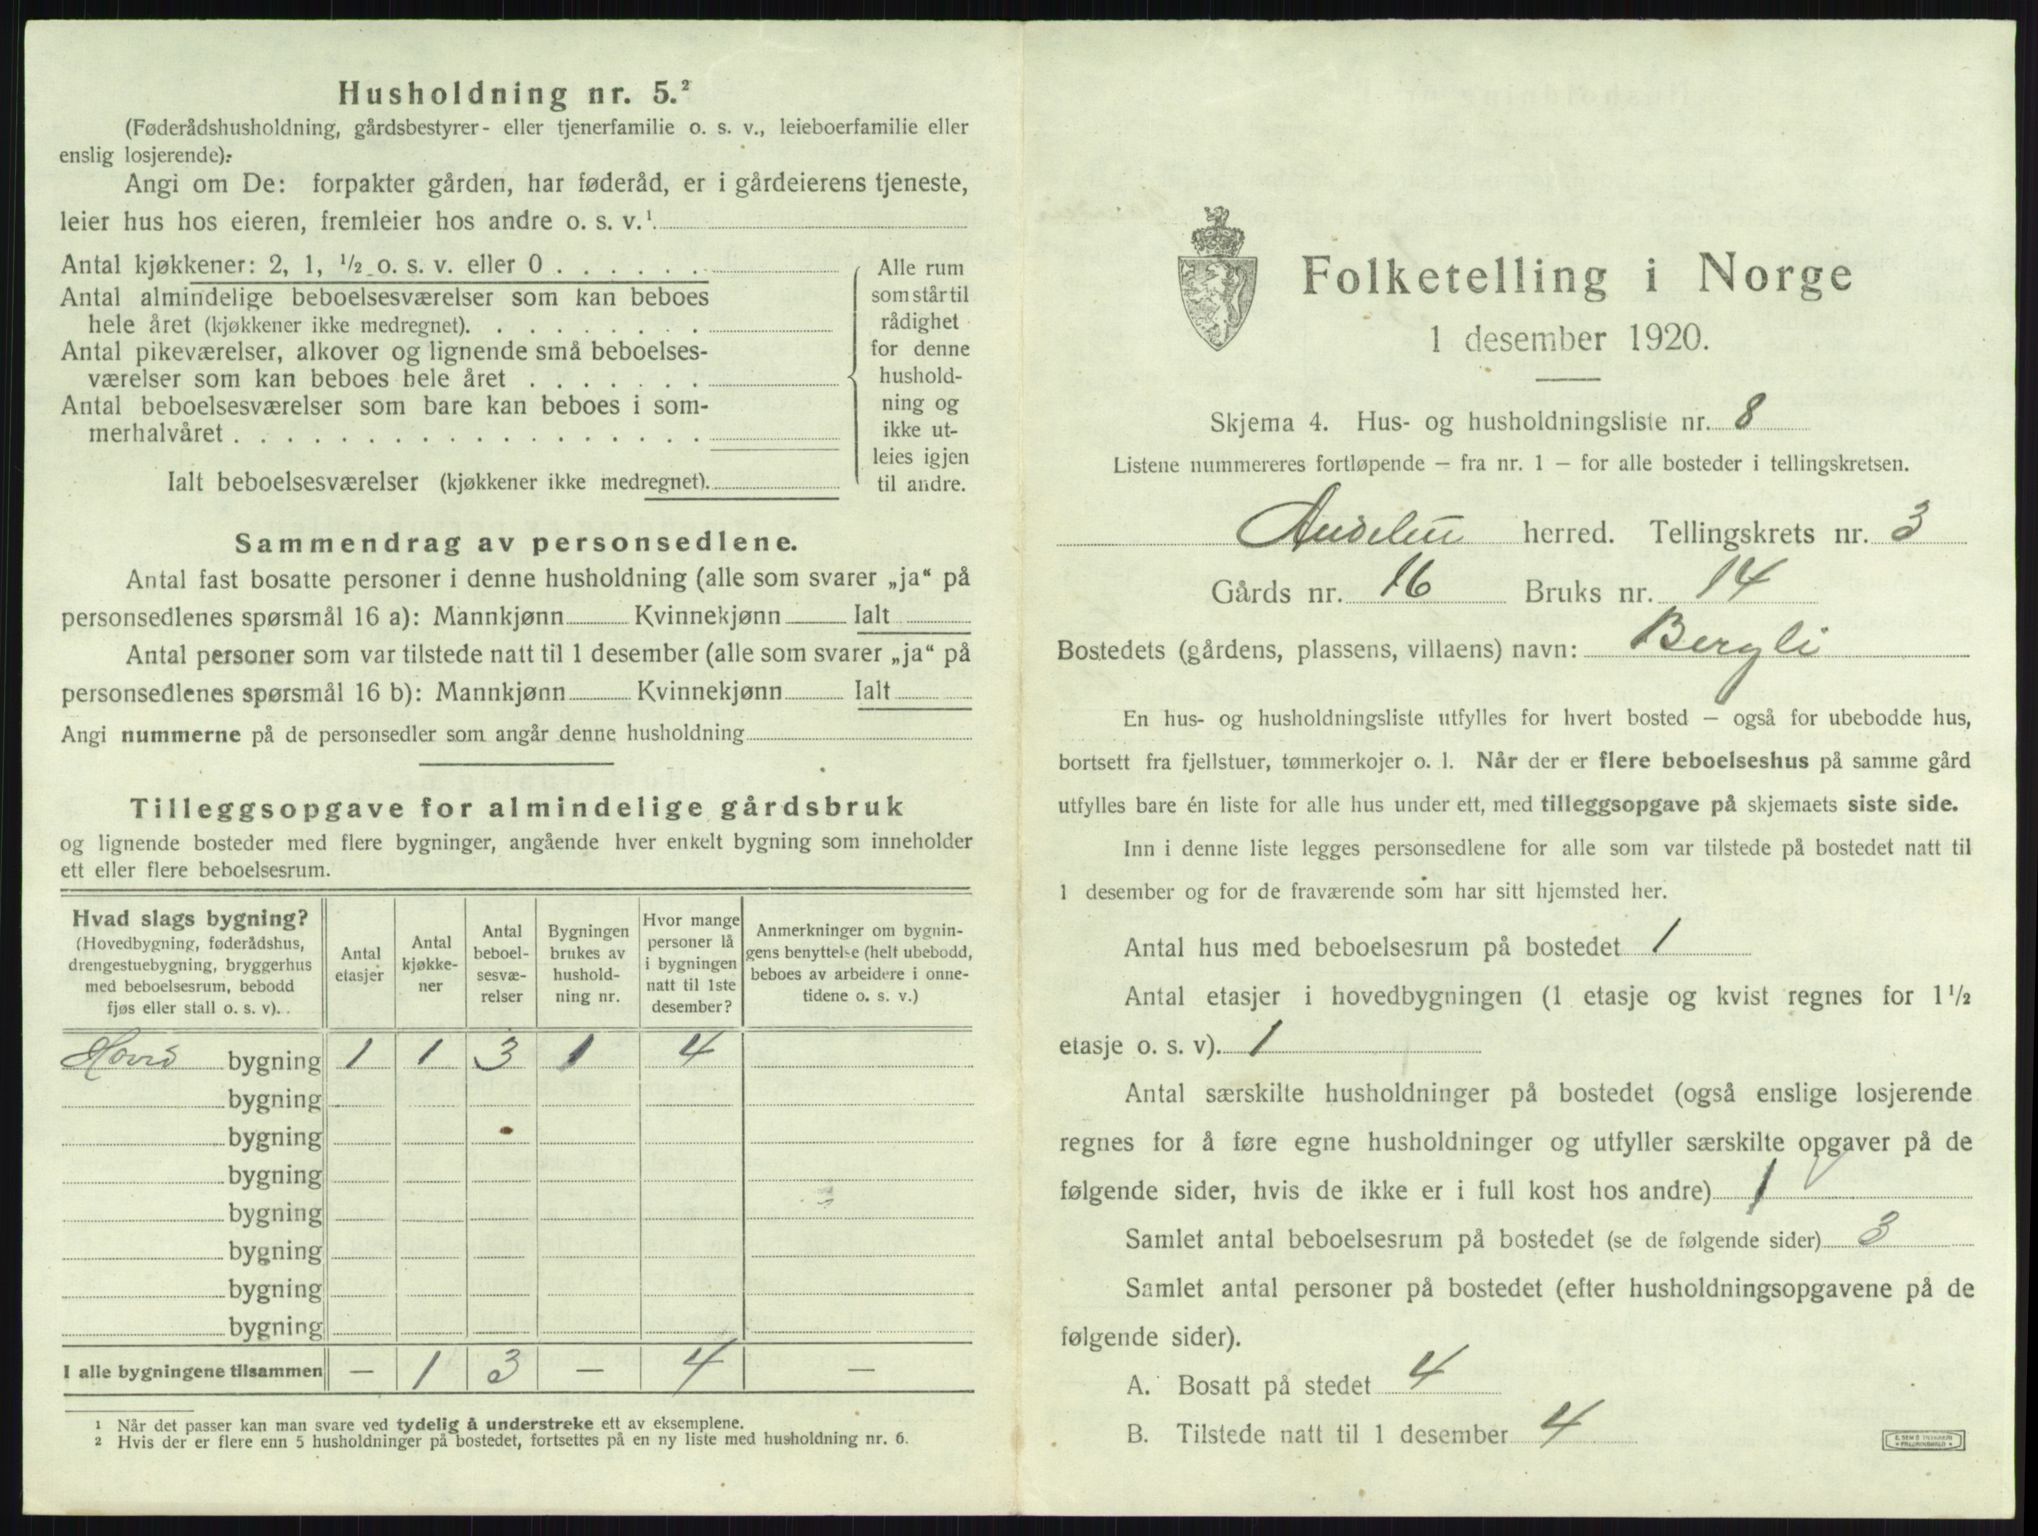 Husholdning nr. 5.²
(Føderådshusholdning, gårdsbestyrer- eller tjenerfamilie o. s. v., leieboerfamilie eller
enslig losjerende):
Angi om De: forpakter gården, har føderåd, er i gårdeierens tjeneste,
leier hus hos eieren, fremleier hos andre o. s. v.¹
Antal kjøkkener: 2, 1, ½ o. s. v. eller 0 . . . . . .
Antal almindelige beboelsesværelser som kan beboes
hele året (kjøkkener ikke medregnet). . . . . . . . .
Antal pikeværelser, alkover og lignende små beboelses-
værelser som kan beboes hele året . . . . . . .
Antal beboelsesværelser som bare kan beboes i som-
merhalvåret . . . . . . . . . . . . . . . . . .
Ialt beboelsesværelser (kjøkkener ikke medregnet).
Alle rum
som står til
rådighet
for denne
hushold-
ning og
ikke ut-
leies igjen
til andre.
Sammendrag av personsedlene.
Antal fast bosatte personer i denne husholdning (alle som svarer „ja“ på
personsedlenes spørsmål 16 a): Mannkjønn Kvinnekjønn Ialt
Antal personer som var tilstede natt til 1 desember (alle som svarer „ja“ på
personsedlenes spørsmål 16 b): Mannkjønn Kvinnekjønn Ialt
Angi nummerne på de personsedler som angår denne husholdning
Tilleggsopgave for almindelige gårdsbruk
og lignende bosteder med flere bygninger, angående hver enkelt bygning som inneholder
ett eller flere beboelsesrum.
Hvad slags bygning?
(Hovedbygning, føderådshus,
drengestuebygning, bryggerhus
med beboelsesrum, bebodd
fjøs eller stall o. s. v). .
Antal
etasjer
Antal
kjøkke-
ner
Antal
beboel-
sesvæ-
relser
Bygningen
brukes av
hushold-
ning nr.
Hvor mange
personer lå
i bygningen
natt til 1ste
desember?
Anmerkninger om bygnin-
gens benyttelse (helt ubebodd,
beboes av arbeidere i onne-
tidene o. s. v.)
Hovd bygning 1 1 3 1 4
bygning
bygning
bygning
bygning
bygning
bygning
bygning
I alle bygningene tilsammen — 1 3 — 4 —
¹ Når det passer kan man svare ved tydelig å understreke ett av eksemplene.
² Hvis der er flere enn 5 husholdninger på bostedet, fortsettes på en ny liste med husholdning nr. 6.
Folketelling i Norge
1 desember 1920.
Skjema 4. Hus- og husholdningsliste nr. 8
Listene nummereres fortløpende — fra nr. 1 — for alle bosteder i tellingskretsen.
herred. Tellingskrets nr. 3
Gårds nr. 16 Bruks nr. 14
Bostedets (gårdens, plassens, villaens) navn: Bergli
En hus- og husholdningsliste utfylles for hvert bosted — også for ubebodde hus,
bortsett fra fjellstuer, tømmerkojer o. l. Når der er flere beboelseshus på samme gård
utfylles bare én liste for alle hus under ett, med tilleggsopgave på skjemaets siste side.
Inn i denne liste legges personsedlene for alle som var tilstede på bostedet natt til
1 desember og for de fraværende som har sitt hjemsted her.
Antal hus med beboelsesrum på bostedet 1
Antal etasjer i hovedbygningen (1 etasje og kvist regnes for 1½
etasje o. s. v). 1
Antal særskilte husholdninger på bostedet (også enslige losjerende
regnes for å føre egne husholdninger og utfyller særskilte opgaver på de
følgende sider, hvis de ikke er i full kost hos andre) 1
Samlet antal beboelsesrum på bostedet (se de følgende sider) 3
Samlet antal personer på bostedet (efter husholdningsopgavene på de
følgende sider).
A. Bosatt på stedet 4
B. Tilstede natt til 1 desember 4